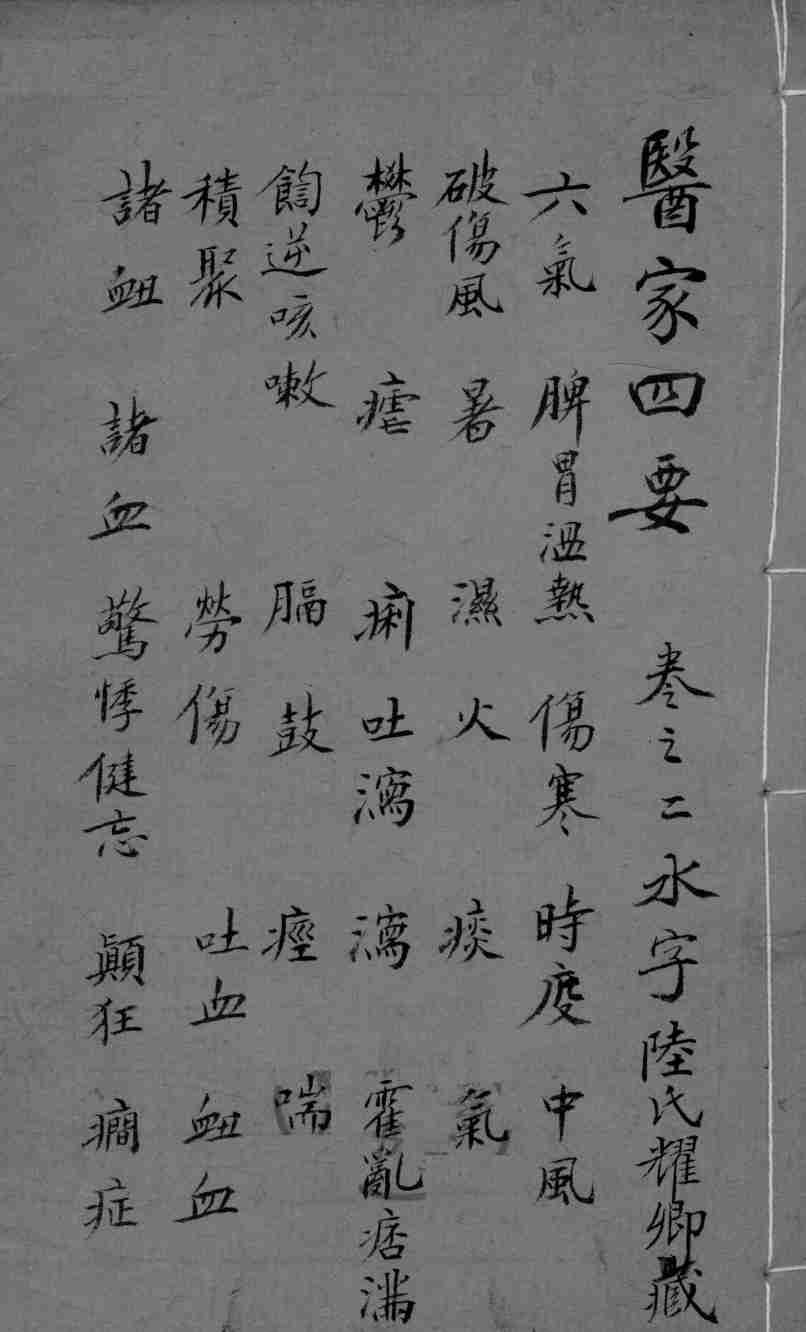 醫家四要 卷之二 水字 陸氏耀卿藏
六氣 脾胃溫熱 傷寒 時疫 中風
破傷風 暑 濕 火 痰 氣
鬱 瘧 痢 吐瀉 瀉 霍亂 痞滿
逆 咳嗽 膈 鼓 痙 喘
積聚 勞傷 吐血 衄血
諸衄 諸血 驚悸健忘 顛狂 癇症